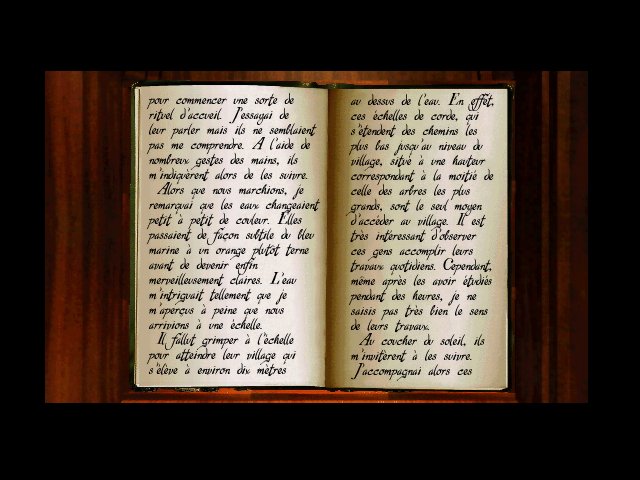 pour commencer une sorte de
rituel d'accueil. J'essayai de
leur parler mais ils ne semblaient
pas me comprendre. A l'aide de
nombreux gestes des mains, ils
m'indiquèrent alors de les suivre.
Alors que nous marchions, je
remarquai que les eaux changeaient
petit à petit de couleur. Elles
passaient de façon subtile du bleu
marine à un orange plutôt terne
avant de devenir enfin
merveilleusement claires. L'eau
m'intriguait tellement que je
m'aperçus à peine que nous
arrivions à une échelle.
Il fallut grimper à l'échelle
pour atteindre leur village qui
s'élève à environ dix mètres
au dessus de l'eau. En effet,
ces échelles de corde, qui
s'étendent des chemins les
plus bas jusqu'au niveau du
village, situé à une hauteur
correspondant à la moitié de
celle des arbres les plus
grands, sont le seul moyen
d'accéder au village. Il est
très intéressant d'observer
ces gens accomplir leurs
travaux quotidiens. Cependant,
même après les avoir étudiés
pendant des heures, je ne
saisis pas très bien le sens
de leurs travaux.
Au coucher du soleil, ils
m'invitèrent à les suivre.
J'accompagnai alors ces